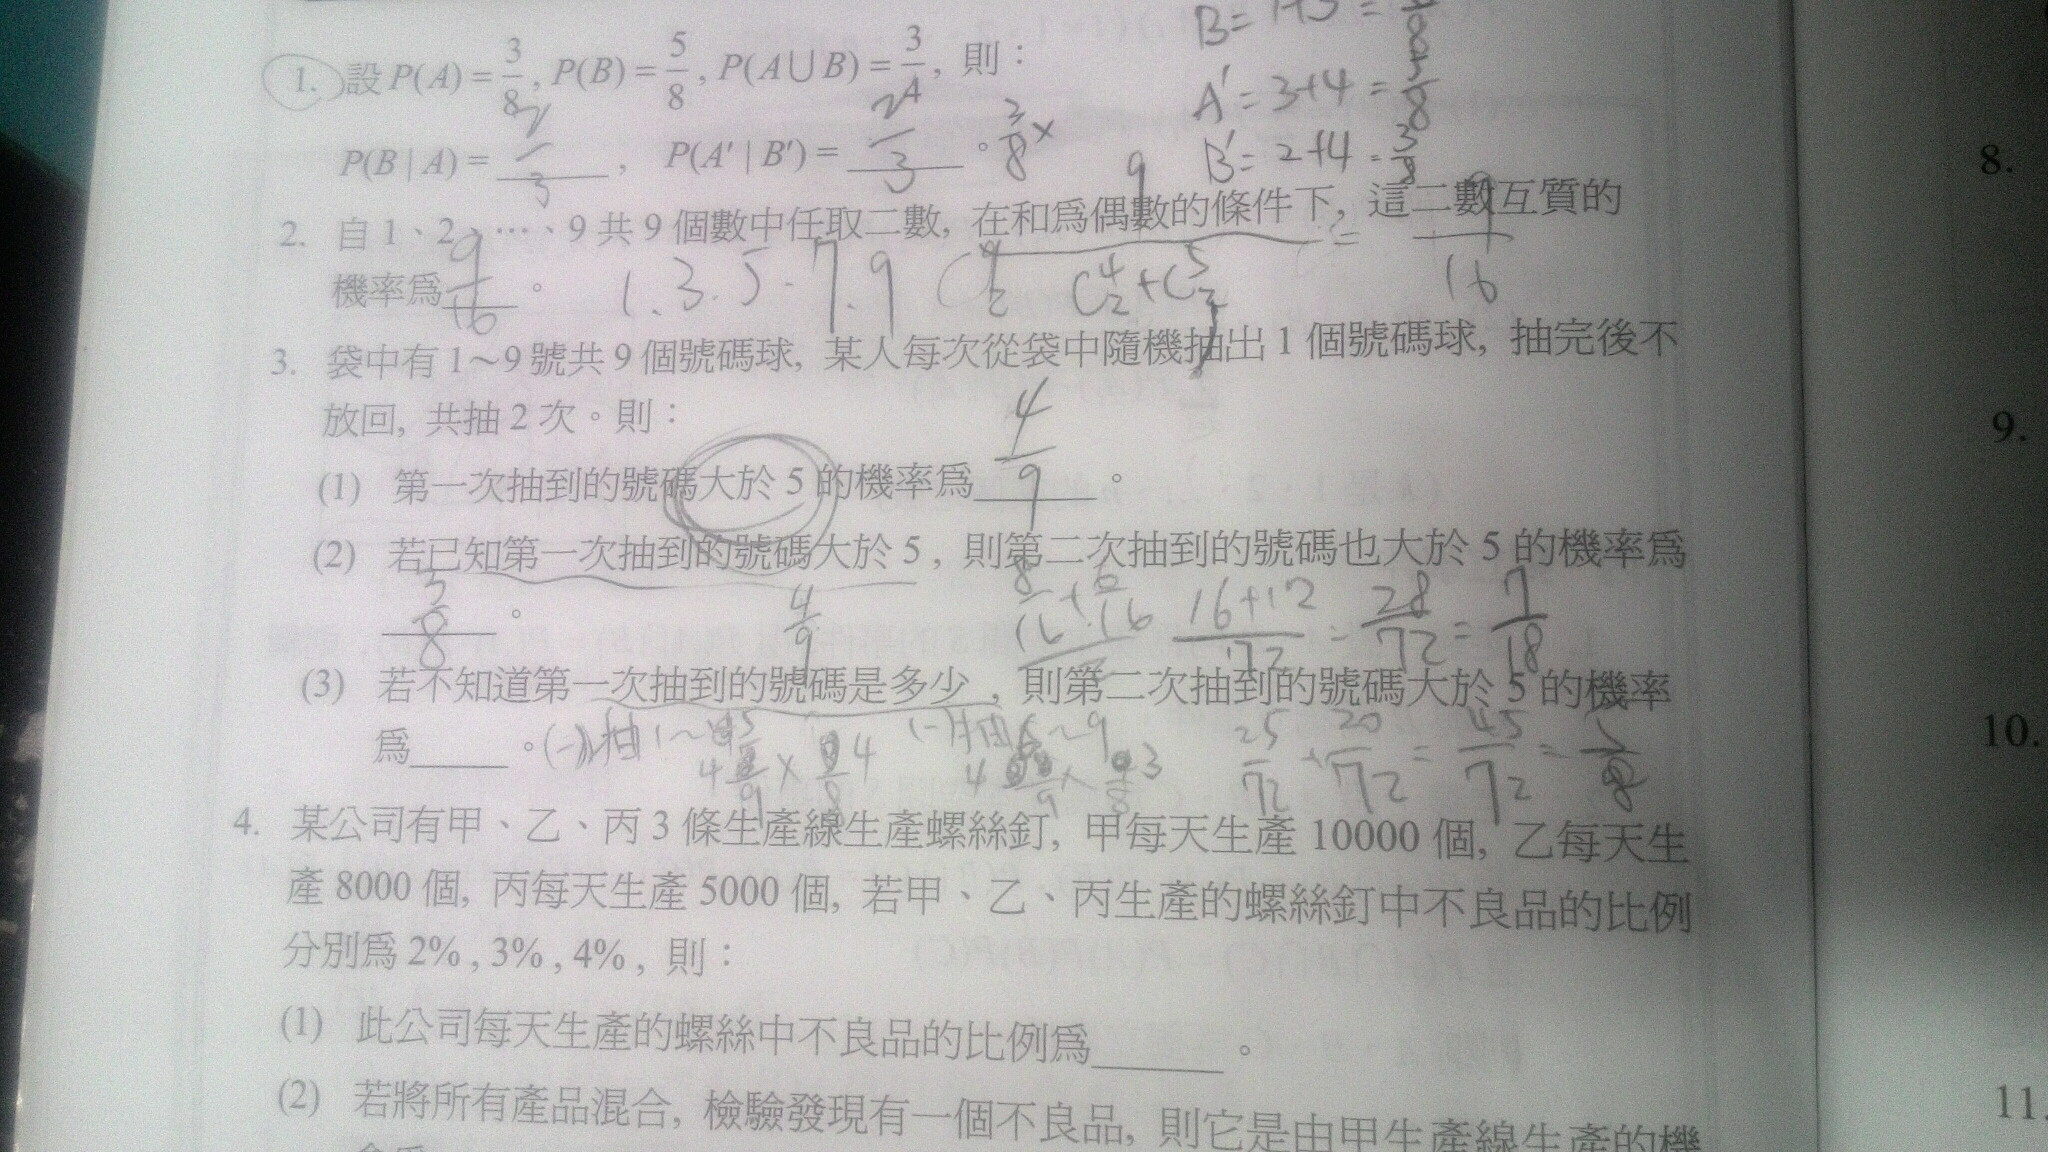 B = 1+3 =
1. 設 P(A) = 3/8 , P(B) = 5/8 , P(A∪B) = 3/4 , 則：
A' = 3+4 = 5/8
P(B | A) = 2/3 , P(A' | B') = 2/3 。 3/8 ×
B' = 2+4 = 3/8
2. 自 1、2、…、9 共 9 個數中任取二數, 在和為偶數的條件下, 這二數互質的
機率為 9/16 。 1.3.5.7.9
9 / C⁴₂+C⁵₂ = 9/16
3. 袋中有 1～9 號共 9 個號碼球, 某人每次從袋中隨機抽出 1 個號碼球, 抽完後不
放回, 共抽 2 次。則：
(1) 第一次抽到的號碼大於 5 的機率為 4/9 。
(2) 若已知第一次抽到的號碼大於 5 , 則第二次抽到的號碼也大於 5 的機率為
3/8 。 4/9 16+12/72 = 28/72 = 7/18
(3) 若不知道第一次抽到的號碼是多少 , 則第二次抽到的號碼大於 5 的機率
為 。 (一)抽1～5 (一)抽6～9 25/72 + 20/72 = 45/72 = 5/8
4. 某公司有甲、乙、丙 3 條生產線生產螺絲釘, 甲每天生產 10000 個, 乙每天生
產 8000 個, 丙每天生產 5000 個, 若甲、乙、丙生產的螺絲釘中不良品的比例
分別為 2% , 3% , 4% , 則：
(1) 此公司每天生產的螺絲中不良品的比例為 。
(2) 若將所有產品混合, 檢驗發現有一個不良品, 則它是由甲生產線生產的機
8.
9.
10.
11.